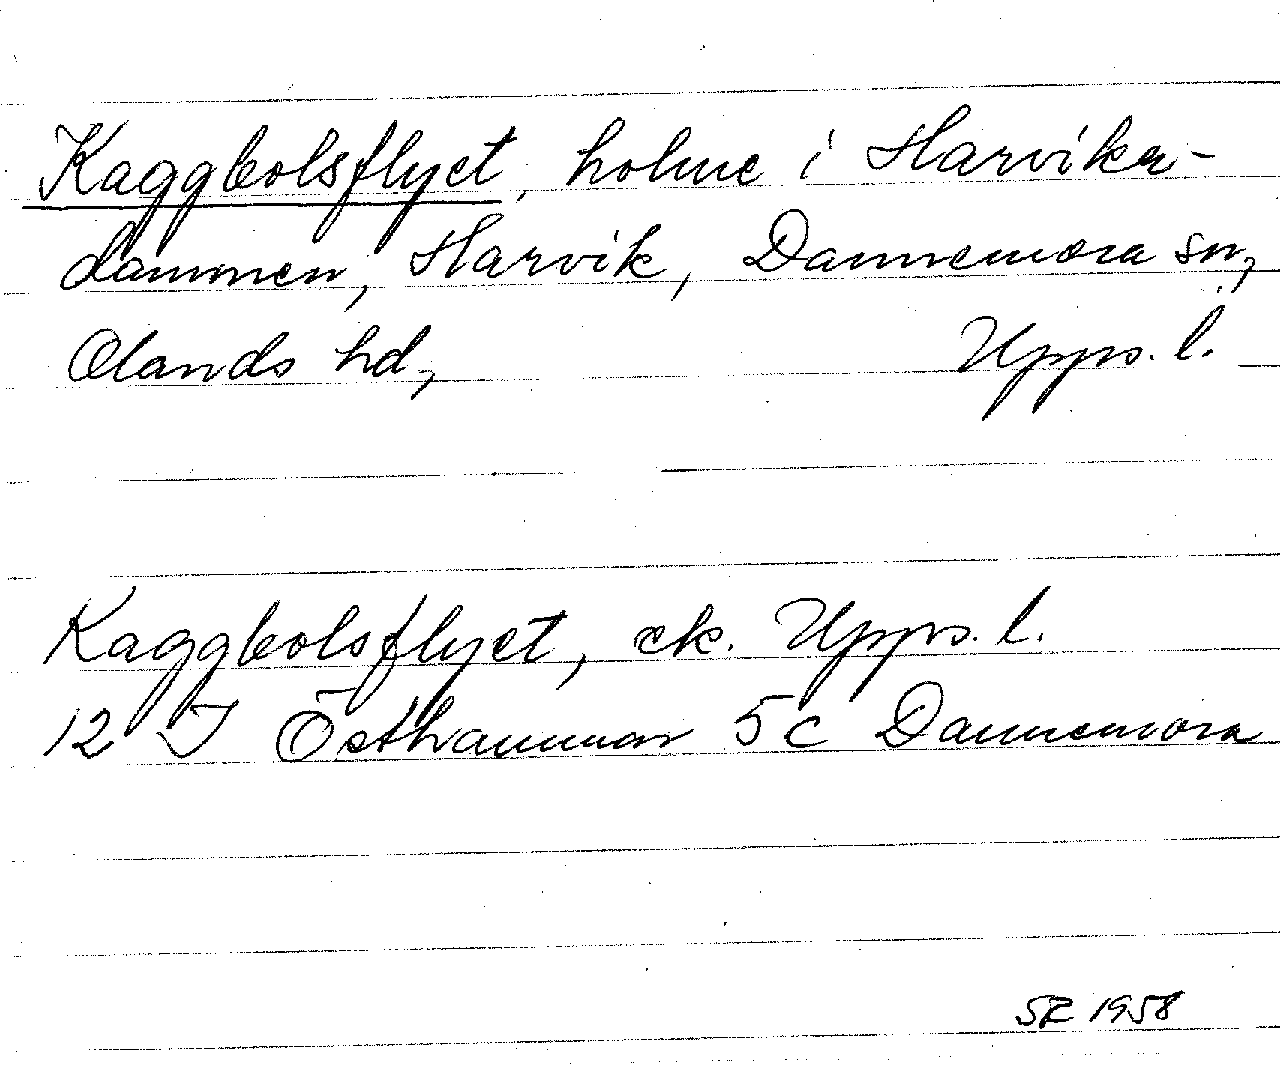 Kaggbolsflyet, holme i Harvika-
dammen, Harvik, Dannemora sn,
Olands hd, Upps. l.
Kaggbolsflyet, ek. Upps. l.
12 I Östhammar 5c Dannemora
SR 1958